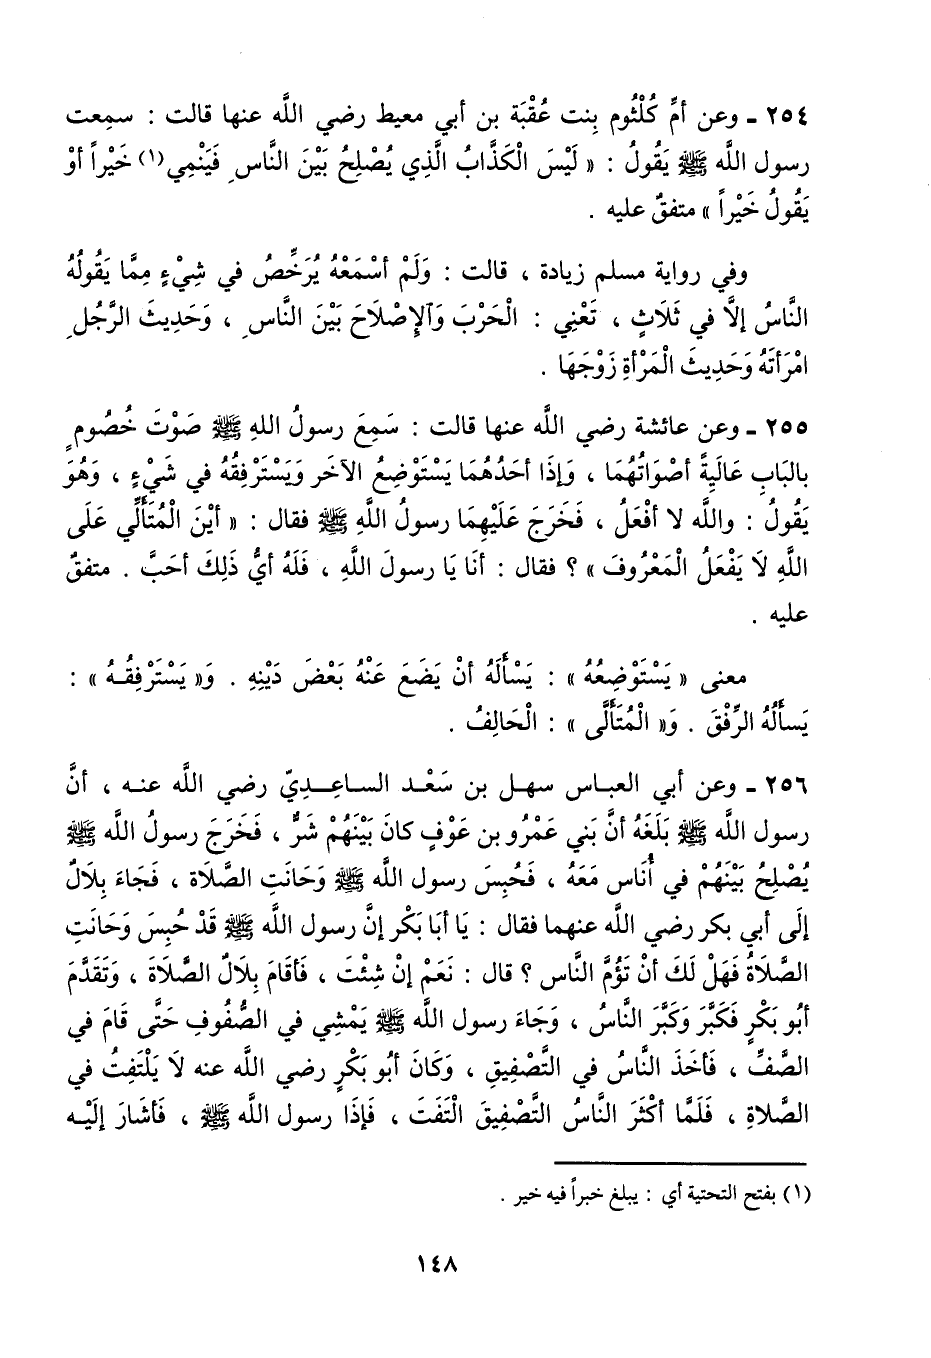 ٢٥٤ ـ وعن أمِّ كُلْثُوم بِنت عُقْبَة بن أبي معيط رضي اللَّه عنها قالت : سمِعت
رسول اللَّه ﷺ يَقُولُ : « لَيْسَ الْكَذَّابُ الَّذِي يُصْلِحُ بَيْنَ النَّاسِ فَيَنْمِي(١) خَيْراً أوْ
يَقُولُ خَيْراً » متفقٌ عليه .
وفي رواية مسلم زيادة ، قالت : وَلَمْ أسْمَعْهُ يُرَخِّصُ في شِيْءٍ مِمَّا يَقُولُهُ
النَّاسُ إلَّا في ثَلَاثٍ ، تَعْنِي : الْحَرْبَ وَالإِصْلَاحَ بَيْنَ النَّاسِ ، وَحَدِيثَ الرَّجُلِ
امْرَأتَهُ وَحَدِيثَ الْمَرْأةِ زَوْجَهَا .
٢٥٥ ـ وعن عائشة رضي اللَّه عنها قالت : سَمِعَ رسولُ اللهِ ﷺ صَوْتَ خُصُومٍ
بالبَابِ عَالَيَةً أصْوَاتُهُمَا ، وَإذَا أحَدُهُمَا يَسْتَوْضِعُ الآخَر وَيَسْتَرْفِقُهُ في شَيْءٍ ، وَهُوَ
يَقُولُ : واللَّه لا أفْعَلُ ، فَخَرَجَ عَلَيْهِمَا رسولُ اللَّهِ ﷺ فقال : « أيْنَ الْمُتَألِّي عَلَى
اللَّهِ لَا يَفْعَلُ الْمَعْرُوفَ » ؟ فقال : أنَا يَا رسولَ اللَّهِ ، فَلَهُ أيُّ ذَلِكَ أحَبَّ . متفقٌ
عليه .
معنى « يَسْتَوْضِعُهُ » : يَسْألَهُ أنْ يَضَعَ عَنْهُ بَعْضَ دَيْنِهِ . وَ« يَسْتَرْفِقُهُ » :
يَسألُهُ الرِّفْقَ . وَ« الْمُتَألِّى » : الْحَالِفُ .
٢٥٦ ـ وعن أبي العباس سهل بن سَعْد الساعِدِيّ رضي اللَّه عنه ، أنَّ
رسول اللَّه ﷺ بَلَغَهُ أنَّ بَني عَمْرُو بن عَوْفٍ كانَ بَيْنَهُمْ شَرٌّ ، فَخَرَجَ رسولُ اللَّه ﷺ
يُصْلِحُ بَيْنَهُمْ في أُنَاس مَعَهُ ، فَحُبِسَ رسول اللَّه ﷺ وَحَانَتِ الصَّلَاة ، فَجَاءَ بِلَالٌ
إلَى أبي بكر رضي اللَّه عنهما فقال : يَا أبَا بَكْر إنَّ رسول اللَّه ﷺ قَدْ حُبِسَ وَحَانَتِ
الصَّلَاةُ فَهَلْ لَكَ أنْ تَؤُمَّ النَّاس ؟ قال : نَعَمْ إنْ شِئْتَ ، فَأقَامَ بِلَالُ الصَّلَاةَ ، وَتَقَدَّمَ
أبُو بَكْرٍ فَكَبَّرَ وَكَبَّرَ النَّاسُ ، وَجَاءَ رسول اللَّه ﷺ يَمْشِي في الصُّفُوفِ حَتَّى قَامَ في
الصَّفِّ ، فَأخَذَ النَّاسُ في التَّصْفِيقِ ، وَكَانَ أبُو بَكْرٍ رضي اللَّه عنه لَا يَلْتَفِتُ في
الصَّلَاةِ ، فَلَمَّا أكْثَرَ النَّاسُ التَّصْفِيقَ الْتَفَتَ ، فَإذَا رسول اللَّه ﷺ ، فَأشَارَ إلَيْه
(١) بفتح التحتية أي : يبلغ خبراً فيه خير .
١٤٨